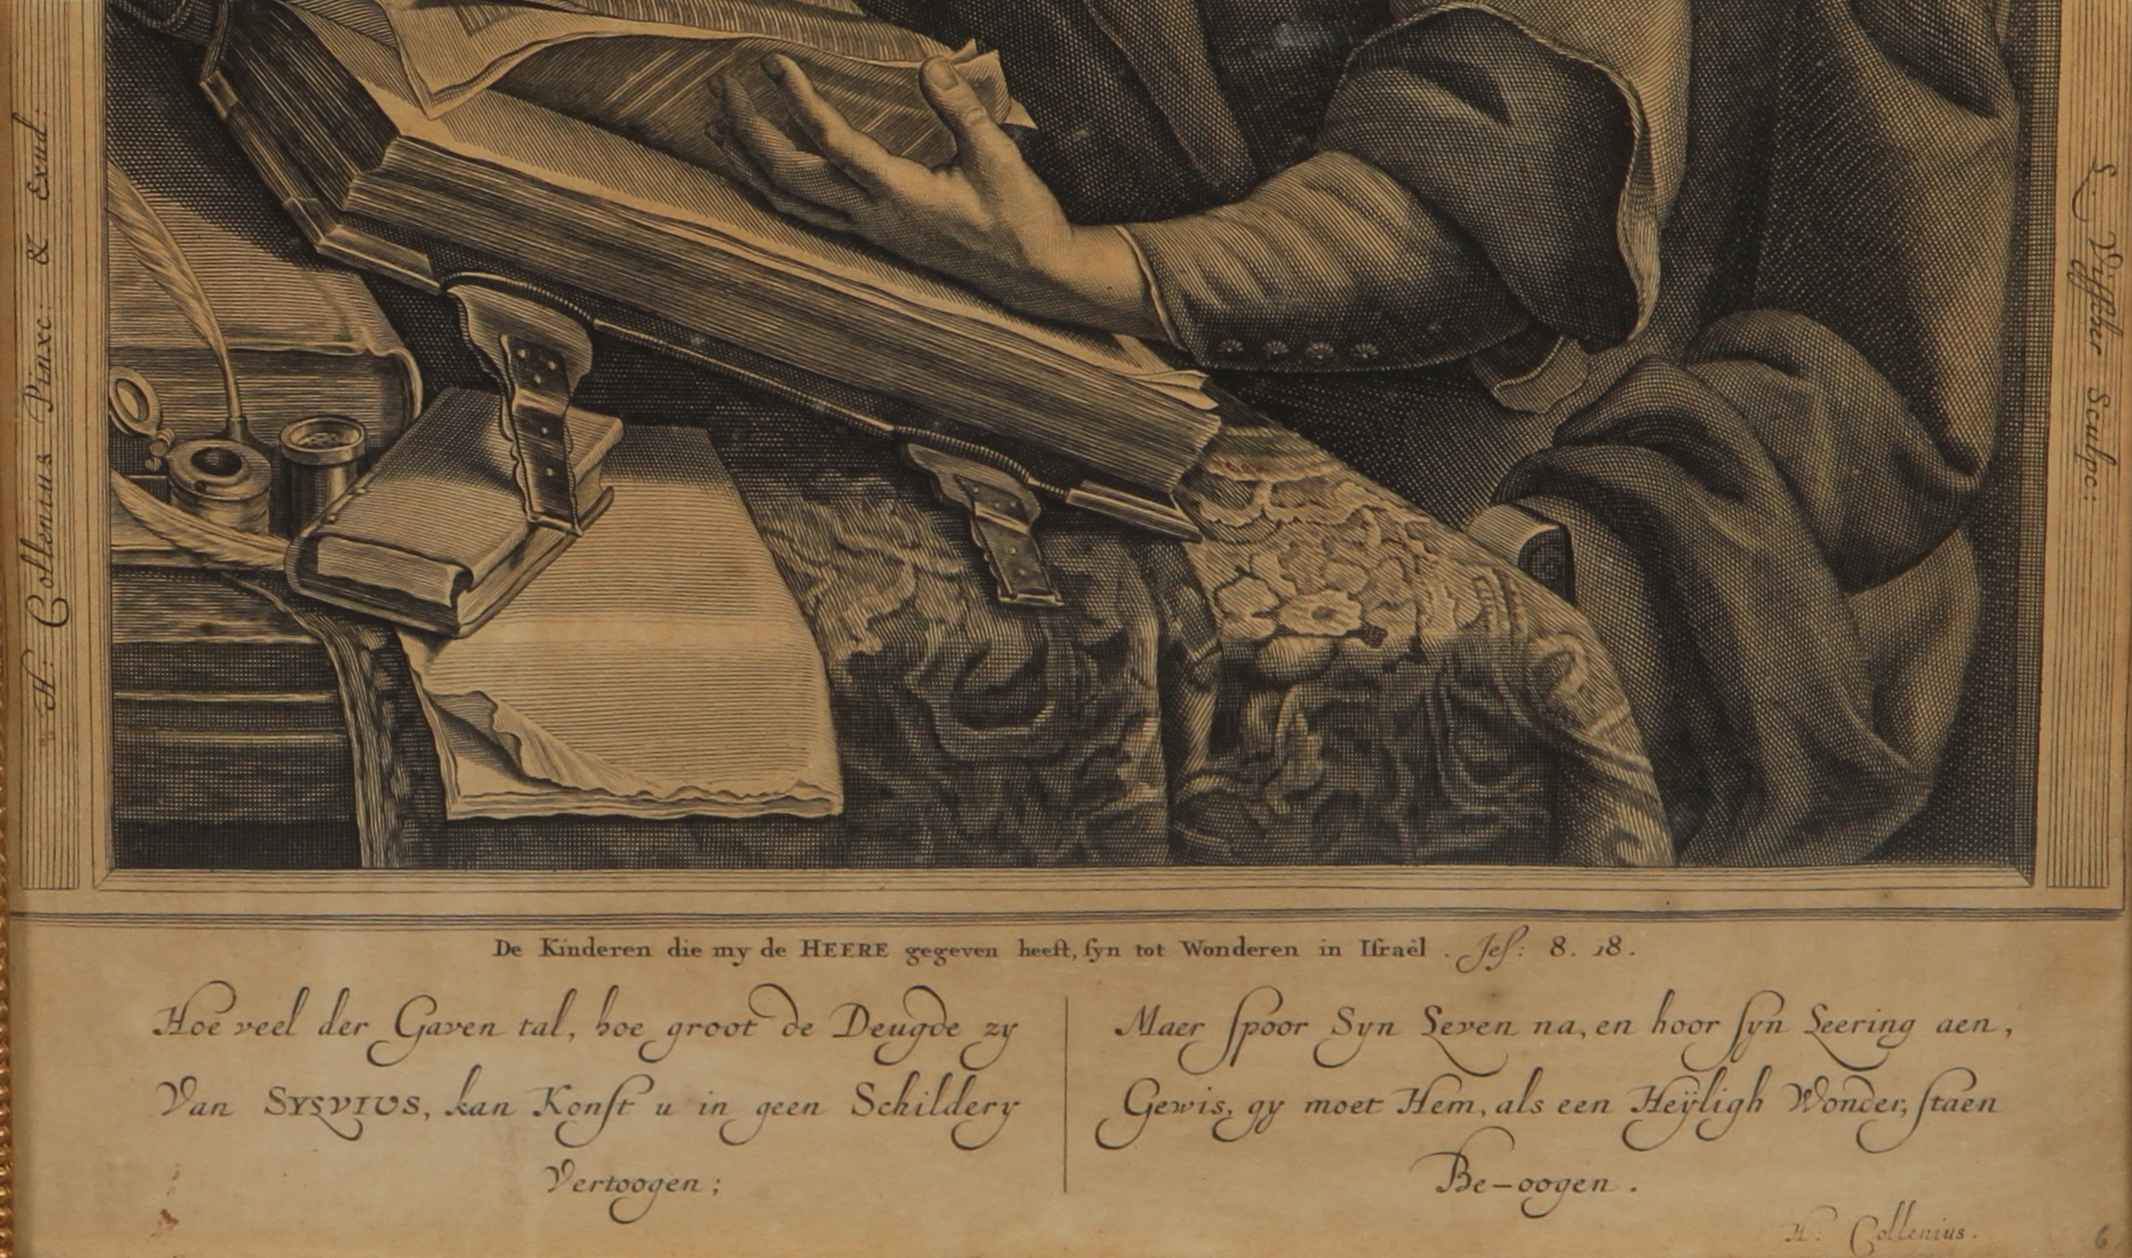 H: Collenius Pinxc: & Exud:
L. Visscher Sculpc:
De Kinderen die my de HEERE gegeven heeft, syn tot Wonderen in Israël . Jes: 8. 18.
Hoe veel der Gaven tal, hoe groot de Deugde zy
Van SYLVIUS, kan Konst u in geen Schildery
Vertoogen;
Maer spoor Syn Leven na, en hoor syn Leering aen,
Gewis, gy moet Hem, als een Heÿligh Wonder, staen
Be-oogen.
H: Collenius.
6